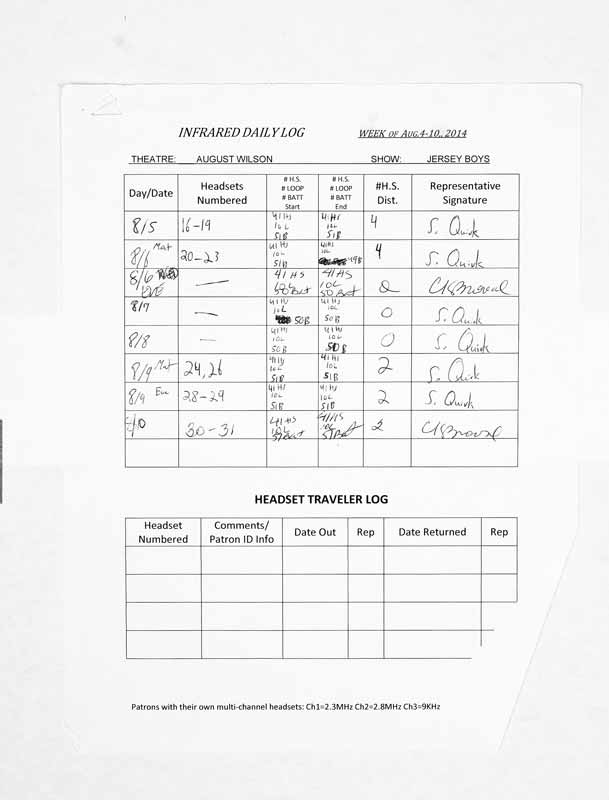 INFRARED DAILY LOG WEEK OF AUG.4-10., 2014
THEATRE: AUGUST WILSON SHOW: JERSEY BOYS
Day/Date Headsets Numbered # H.S. # LOOP # BATT Start # H.S. # LOOP # BATT End #H.S. Dist. Representative Signature
8/5 16-19 41 HS 10 L 51B 41 HS 10L 51B 4 S. Quirk
8/6 Mat 20-23 41 HS 10L 51B 41HS 10L 49B 4 S. Quirk
8/6 EVE — 41 HS 50 Bat 41 HS 10L 50 Bat
8/7 — 41 HS 10L 50B 41 HS 10L 50B 0 S. Quirk
8/8 — 41 HS 10L 50B 41 HS 10L 50B 0 S. Quirk
8/9 Mat 24, 26 41 HS 10L 51B 41 HS 10L 51B 2 S. Quirk
8/9 Eve 28-29 41 HS 10L 51B 41 HS 10L 51B 2 S. Quirk
30-31 41 HS 10L 51Bat 41 HS 10L 51Bat 2
HEADSET TRAVELER LOG
Headset Numbered Comments/ Patron ID Info Date Out Rep Date Returned Rep
Patrons with their own multi-channel headsets: Ch1=2.3MHz Ch2=2.8MHz Ch3=9KHz